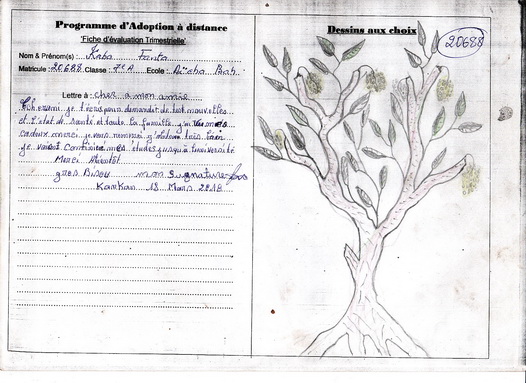 Programme d'Adoption à distance
'Fiche d'évaluation Trimestrielle'
Nom & Prénom(s): Kaba Fanta
Matricule 20688 Classe: 7e A Ecole: Aïcha Bah
Lettre à: cher a mon amie
je demander de tout nouvelles
et l'état de santé et toute la famille j'ai
cadeux merci je vous remercie
je continue mes études jusqu'a l'université
Merci Abientôt
gros Bisou mon signature
Kankan 18 Mars 2018
Dessins aux choix
20688